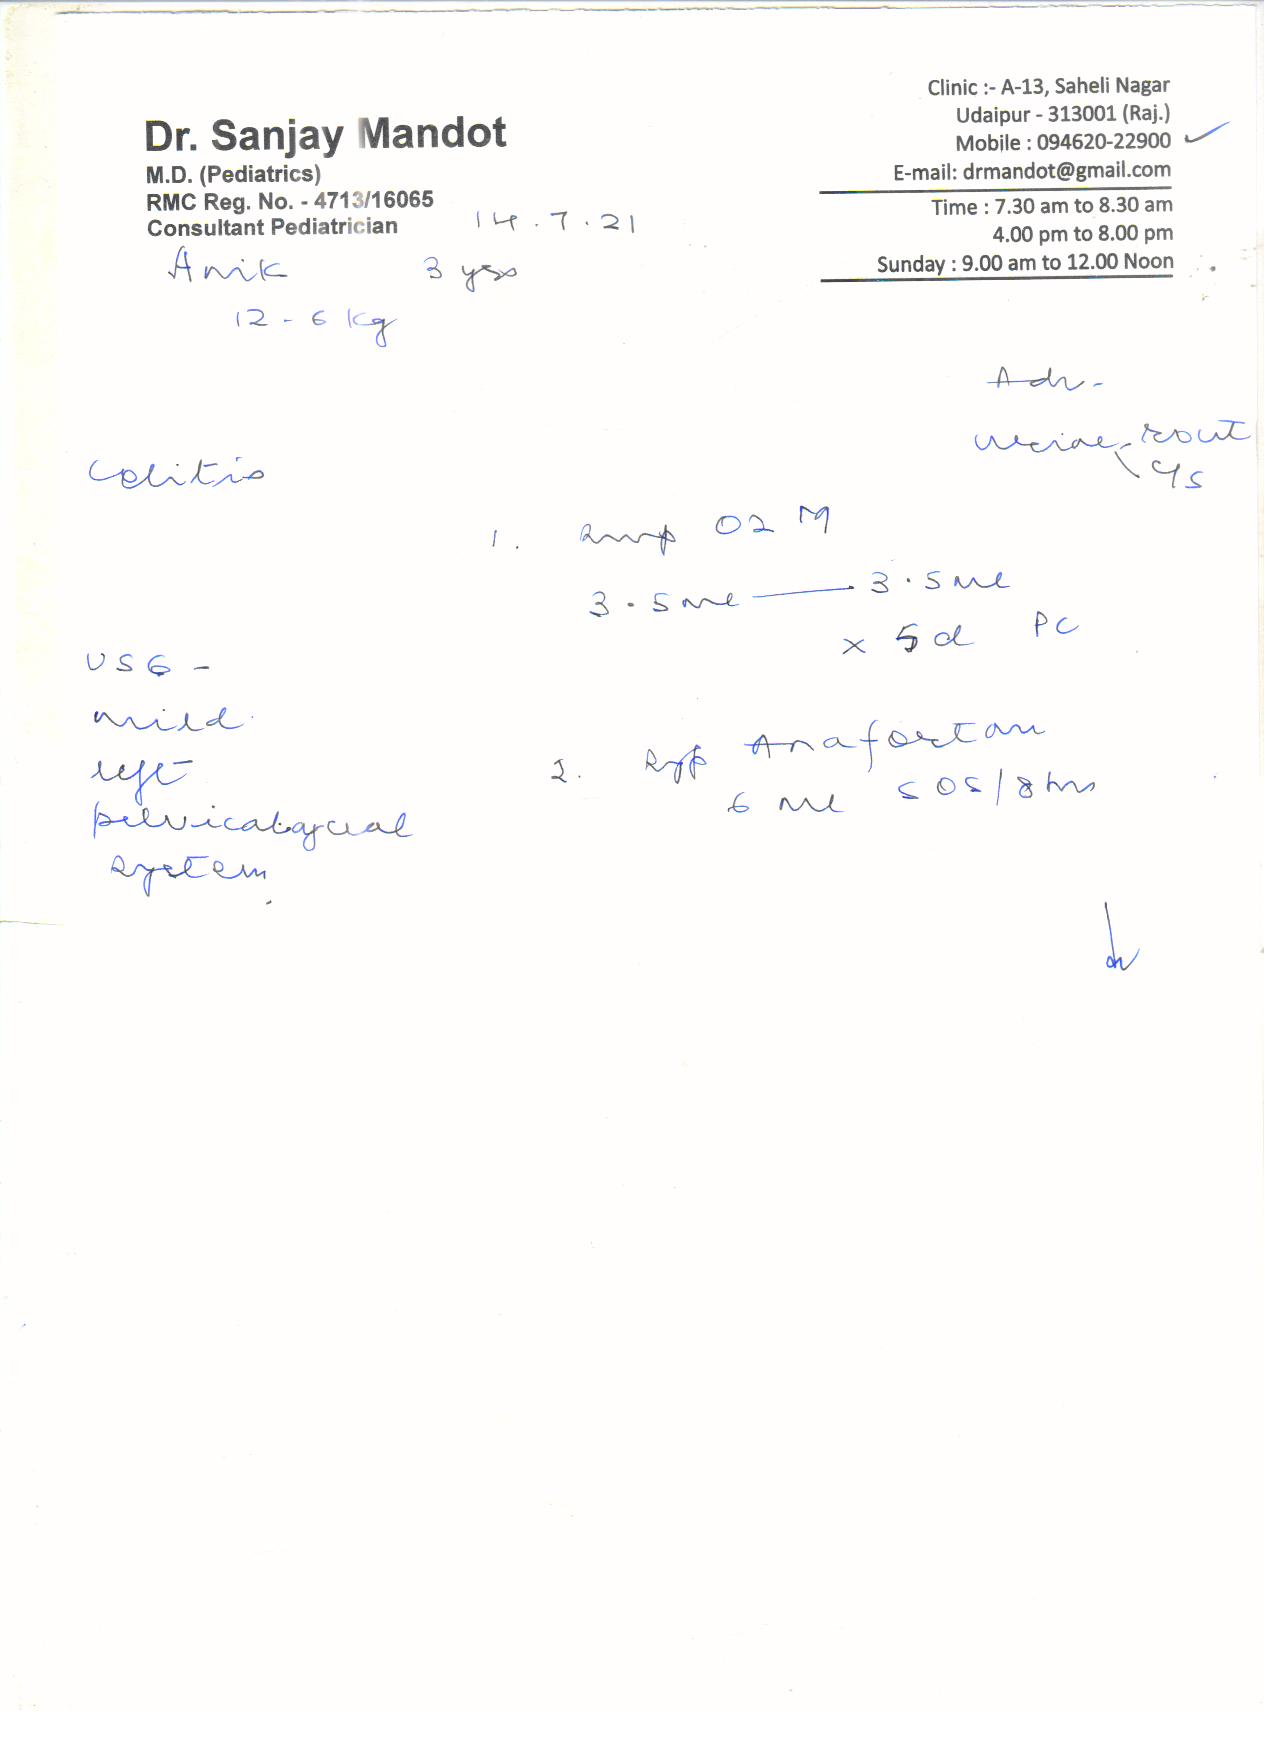 Dr. Sanjay Mandot
M.D. (Pediatrics)
RMC Reg. No. - 4713/16065
Consultant Pediatrician
Clinic :- A-13, Saheli Nagar
Udaipur - 313001 (Raj.)
Mobile : 094620-22900
E-mail: drmandot@gmail.com
Time : 7.30 am to 8.30 am
4.00 pm to 8.00 pm
Sunday : 9.00 am to 12.00 Noon
14.7.21
Anik 3 yrs
12-6 kg
Adv-
Urine
c/s
Colitis
1. Syp O2 M
3.5 ml — 3.5 ml
x 5 d PC
USG -
mild
left
pelvicalyceal
system
2. Syp Anafortan
6 ml SOS/8 hrs